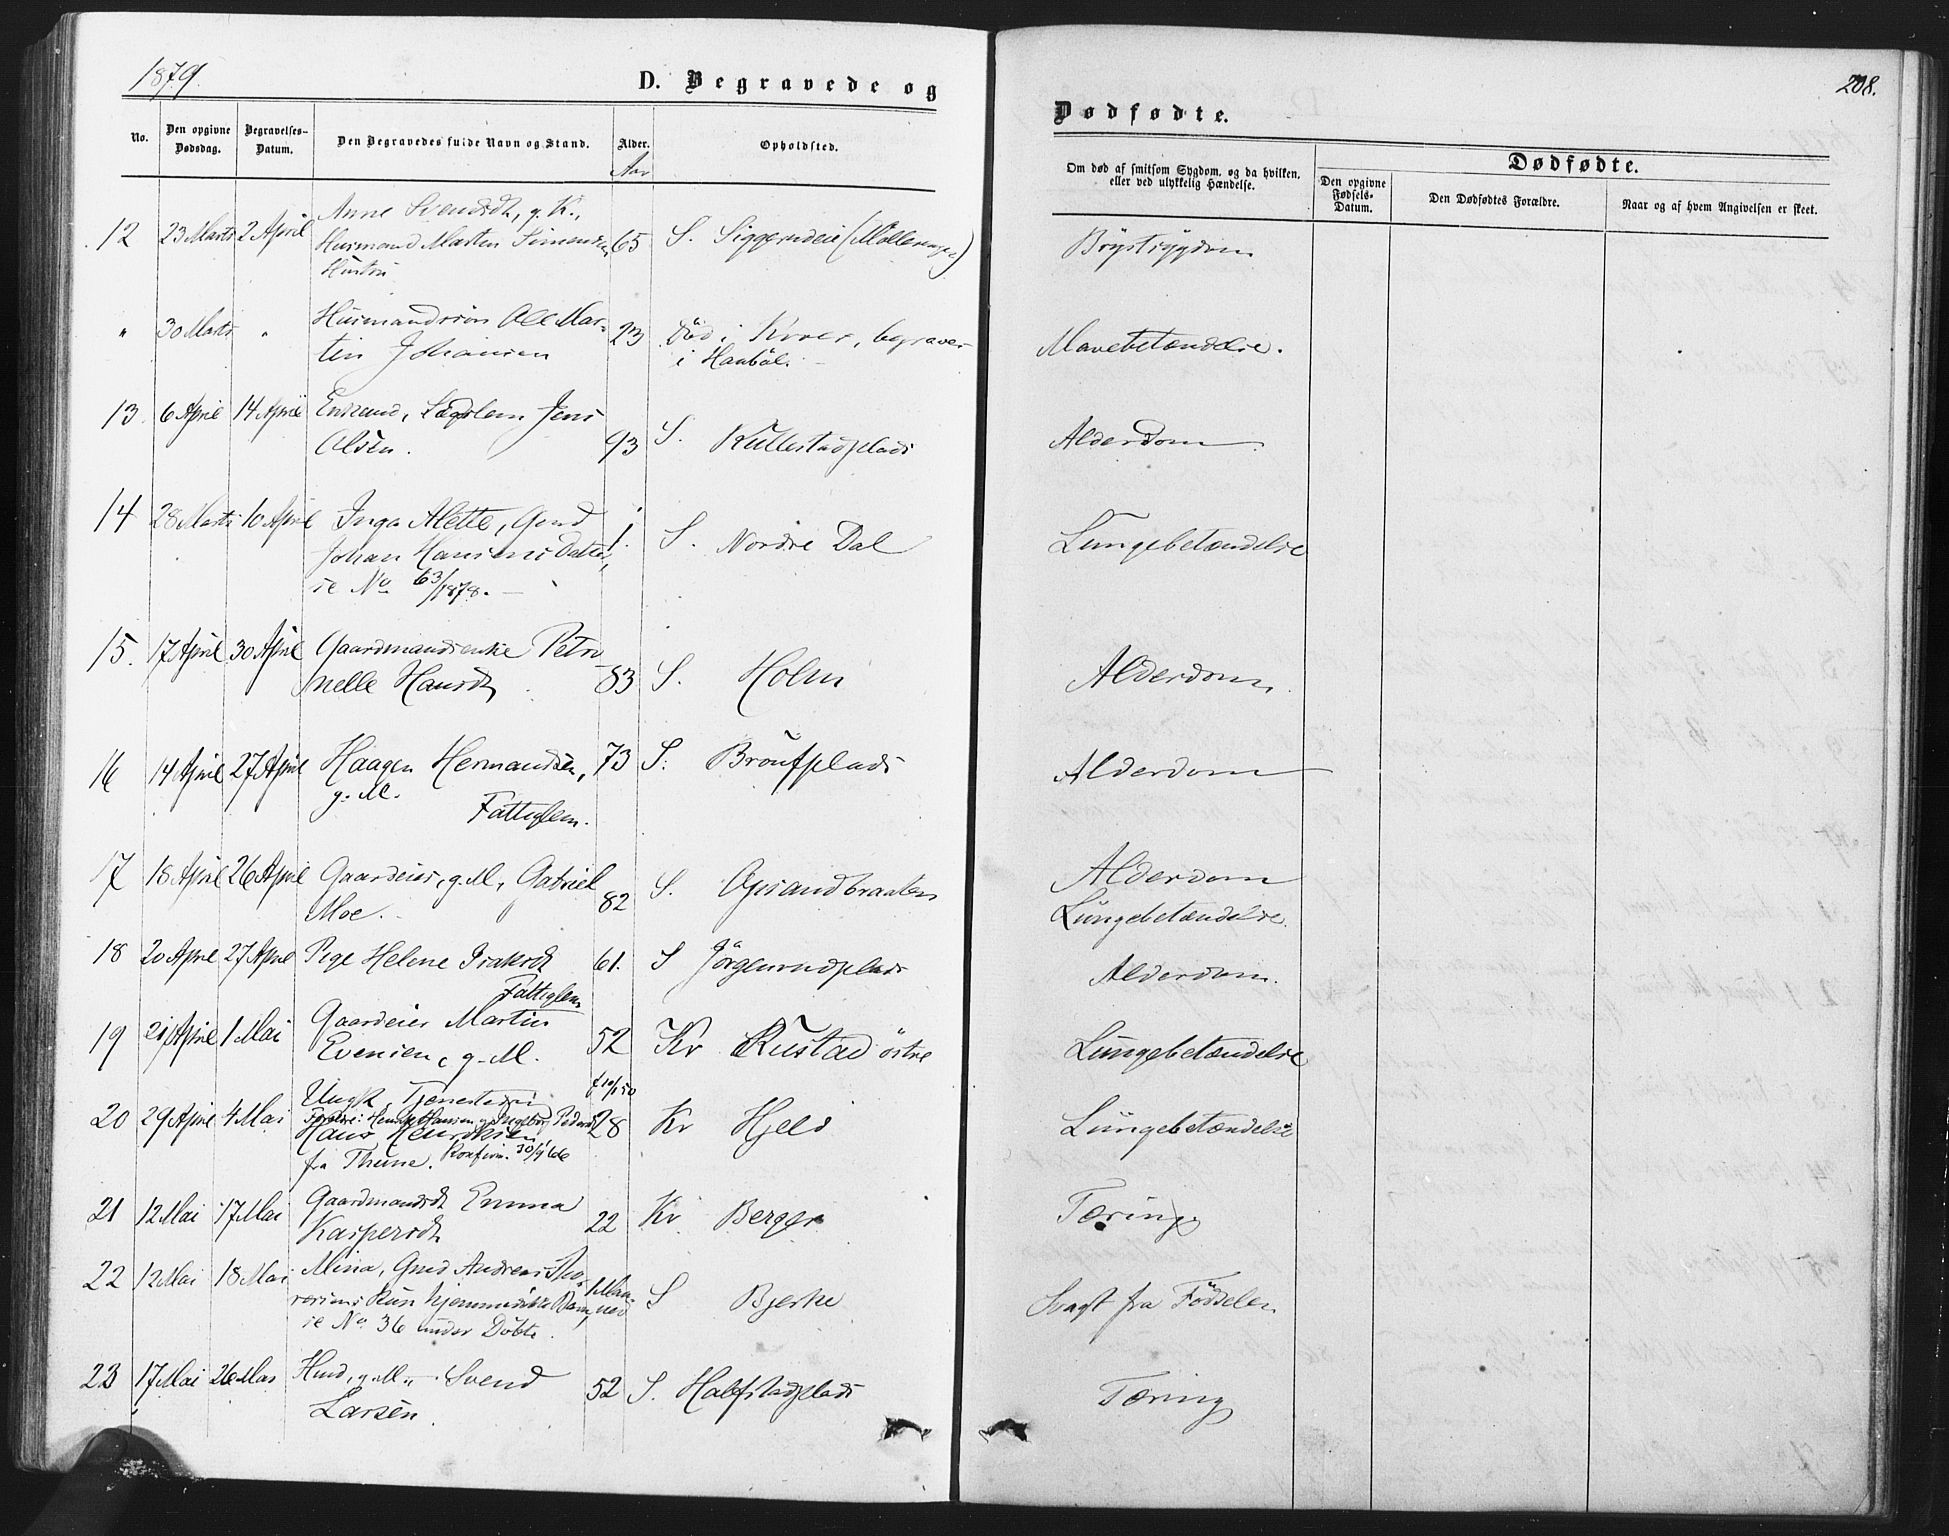 1879.
D. Begravede og
No.
Den opgivne Dødsdag.
Begravelses-Datum.
Den Begravedes fulde Navn og Stand.
Alder.
Aar
Opholdsted.
12 23 Marts 2 April Anne Svendsdt, g. K.,
Husmand Morten Simensens 65 S.
Hustru
" 30 Marts " Husmandssøn Ole Mar-
tin Johansen 23 Død i Kroer, begravet
i Haabøl.
13. 6 April 14 April Enkemd, Lægdslem Jens
Olsen. 93 S. Kullestadplads
14 28 Marts 10 April Inga Alette, Gmd
Johan Hansens Datter, 1. S. Nordre Dal
se No 63/1878.
15. 17 April 30 April Gaardmandsenke Petro
nelle Hansdt 83 S. Holm
16 14 April 27 April Haagen Hermandsen, 73 S.
g. M. Fattiglem.
17 18 April 26 April Gaardeier, g. M., Gabriel
Moe. 82 S. Opsandbraaten
18 20 April 27 April Pige Helene Isaksdt 61. S Jörgenrudplads
Fattiglem
19 21 April 1 Mai Gaardeier Martin
Evensen, g. M. 52 Kv Rustad östre
20 29 April 4 Mai Ungk. Tjenestedr.
Hans Henriksen 28 Kv Hjeld
fra Thune. Konfirm.
21 12 Mai 17 Mai Gaardmandsdt Emma
Kaspersdt 22 Kv Berger
22 12 Mai 18 Mai Mina, Gmd Andreas Tho-
resens kun hjemmedöbte Barn, 1 Maa-ned S Bjerke
se No 36 under Döbte.
23 17 Mai 26 Mai Husmd, g. M., Svend
Larsen. 52 S. Halfstadplads
208.
Dødfødte.
Om død af smitsom Sygdom, og da hvilken,
eller ved ulykkelig Hændelse.
Dødfødte.
Den opgivne Fødsels-Datum.
Den Dødfødtes Forældre.
Naar og af hvem Angivelsen er skeet.
Brystsygdom
Mavebetændelse.
Alderdom
Lungebetændelse
Alderdom.
Alderdom
Alderdom
Lungebetændelse.
Alderdom.
Lungebetændelse
Lungebetændelse
Tæring
Svagt fra Födselen
Tæring